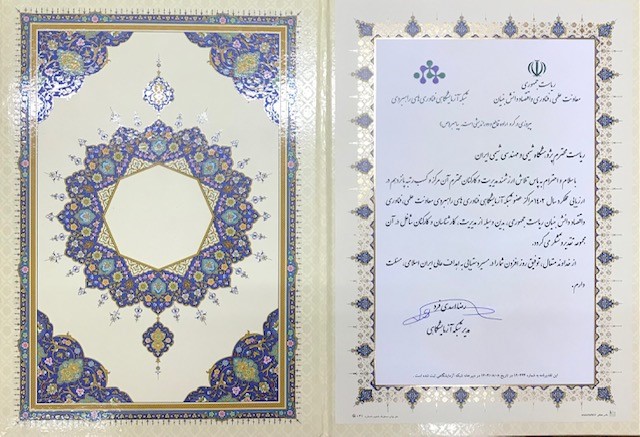 ریاست جمهوری
معاونت علمی، فناوری و اقتصاد دانش بنیان
شبکه آزمایشگاهی فناوری های راهبردی
ریاست محترم پژوهشگاه شیمی و مهندسی شیمی ایران
با سلام و احترام به پاس تلاش ارزشمند مدیریت و کارکنان محترم آن مرکز و کسب رتبه پانزدهم در
ارزیابی عملکرد سال ۱۴۰۲ مراکز عضو شبکه آزمایشگاهی فناوری های راهبردی معاونت علمی، فناوری
و اقتصاد دانش بنیان ریاست جمهوری، بدین وسیله از مدیریت، کارشناسان و کارکنان شاغل در آن
مجموعه تقدیر و تشکر می گردد.
از خداوند متعال، توفیق روز افزون شما را در مسیر دستیابی به اهداف عالی ایران اسلامی، مسئلت
دارم.
رضا اسدی فرد
مدیر شبکه آزمایشگاهی